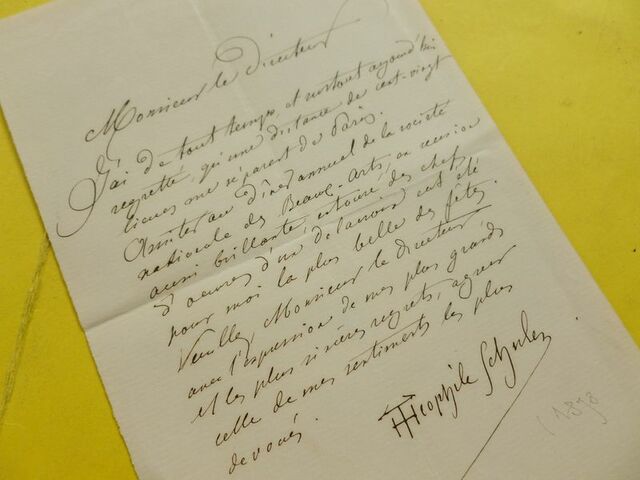 Monsieur le directeur
J'ai de tout temps, et surtout aujourd'hui
regretté, qu'une distance de cent-vingt
lieues me séparent de Paris.
Assister au dîner annuel de la société
nationale des Beaux-Arts, en réunion
aussi brillante, entourée des chefs
d'œuvres d'un Delacroix eut été
pour moi la plus belle des fêtes.
Veuillez, Monsieur le directeur
avec l'expression de mes plus grands
et les plus sincères regrets, agréer
celle de mes sentiments les plus
dévoués.
Théophile Schuler